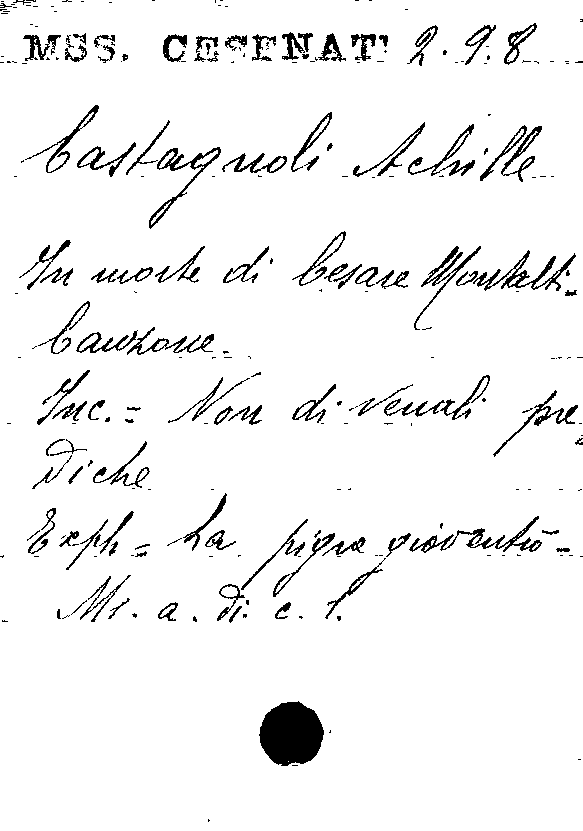 MSS. CESENATI 2.9.8
Castagnoli Achille
In morte di Cesare Montalti-
Canzone.
Inc.= Non di venali pre,,
diche
Exph = La pigra gioventù -
Ms. a. di. c. 1.